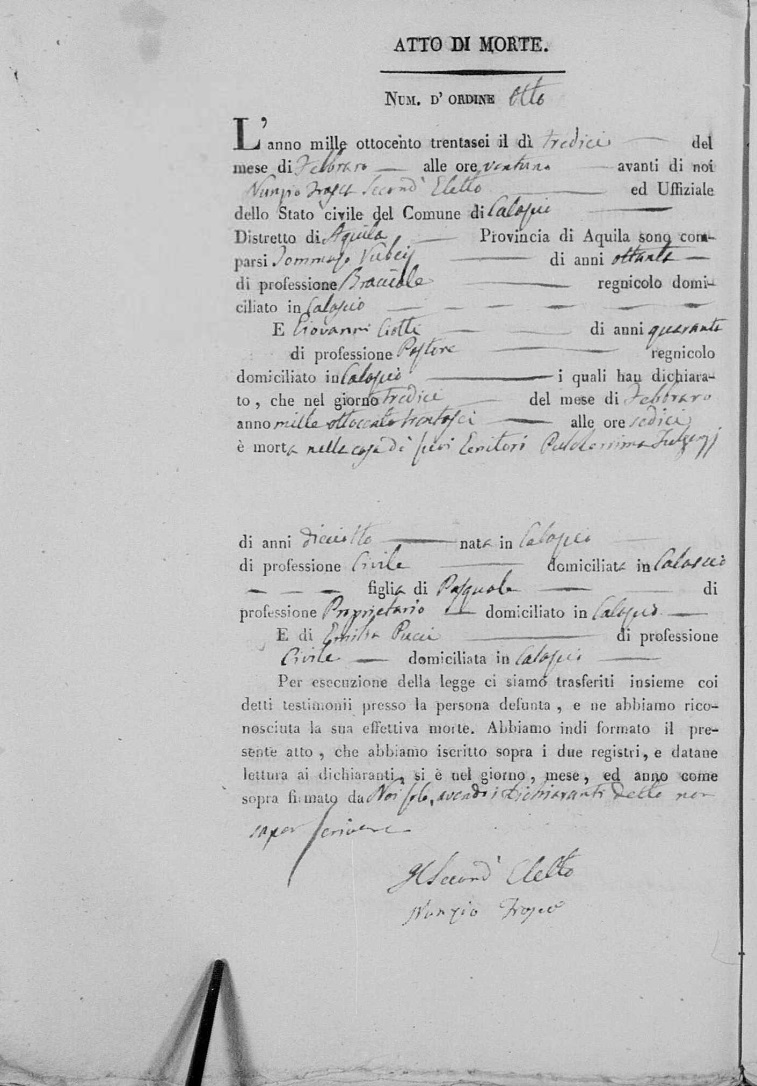 ATTO DI MORTE.
NUM. D' ORDINE Otto
L'anno mille ottocento trentasei il dì tredici del
mese di Febbraro alle ore ventuno avanti di noi
Nunzio Second' Eletto ed Uffiziale
dello Stato civile del Comune di Calascio
Distretto di Aquila Provincia di Aquila sono com-
parsi Tommaso di anni ottanta
di professione Bracciale regnicolo domi-
ciliato in Calascio
E Giovanni Ciotti di anni quaranta
di professione Pastore regnicolo
domiciliato in Calascio i quali han dichiara-
to, che nel giorno tredici del mese di Febbraro
anno mille ottocento trentasei alle ore sedici
è morta nella casa di suoi Genitori Pulcherrima
di anni diciotto nata in Calascio
di professione Civile domiciliata in Calascio
figlia di Pasquale di
professione Proprietario domiciliato in Calascio
E di Emilia Pucci di professione
Civile domiciliata in Calascio
Per esecuzione della legge ci siamo trasferiti insieme coi
detti testimonii presso la persona defunta, e ne abbiamo rico-
nosciuta la sua effettiva morte. Abbiamo indi formato il pre-
sente atto, che abbiamo iscritto sopra i due registri, e datane
lettura ai dichiaranti, si è nel giorno, mese, ed anno come
sopra firmato da Noi solo, avendo i Dichiaranti detto non
saper scrivere
Il Second' Eletto
Nunzio